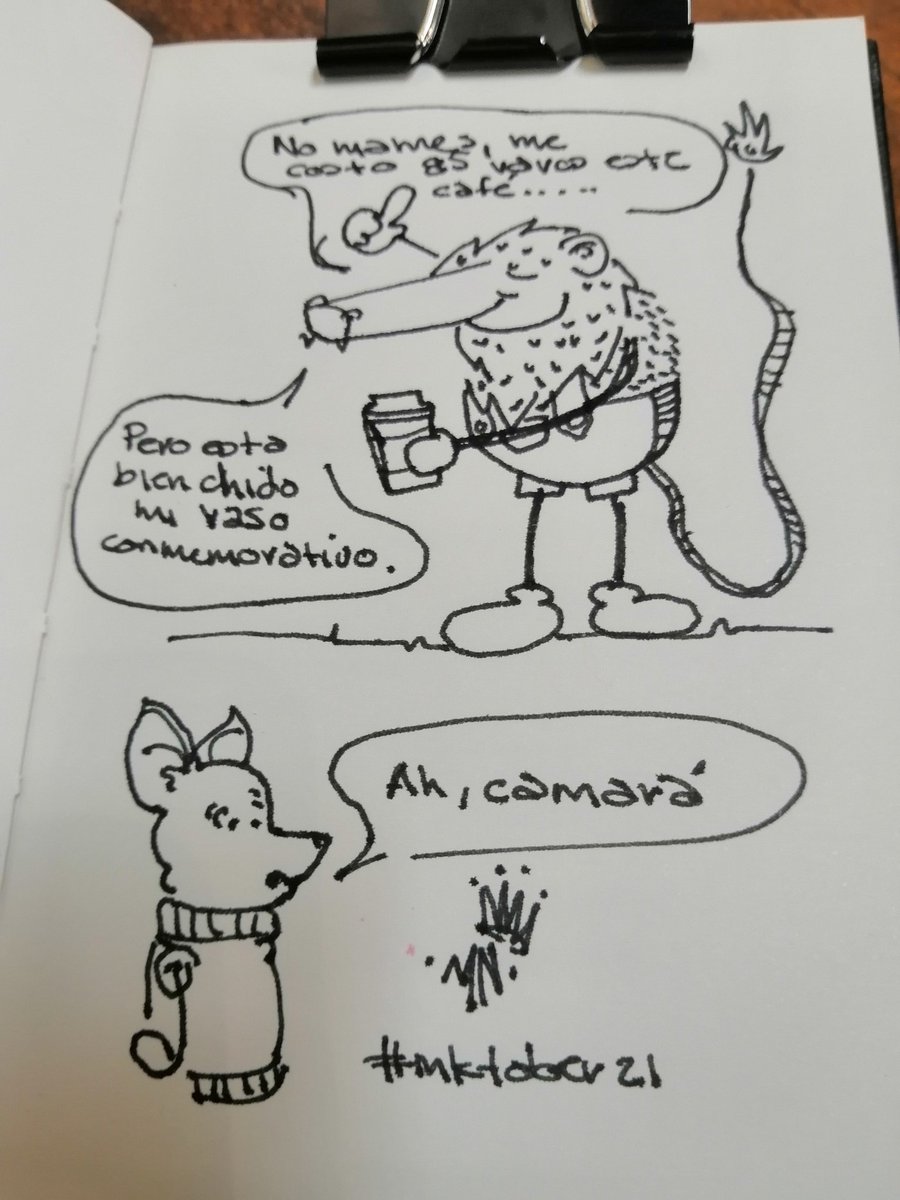 No mames, me
costo 85 varos este
café.....
Pero esta
bien chido
mi vaso
conmemorativo.
Ah, camará
#inktober21